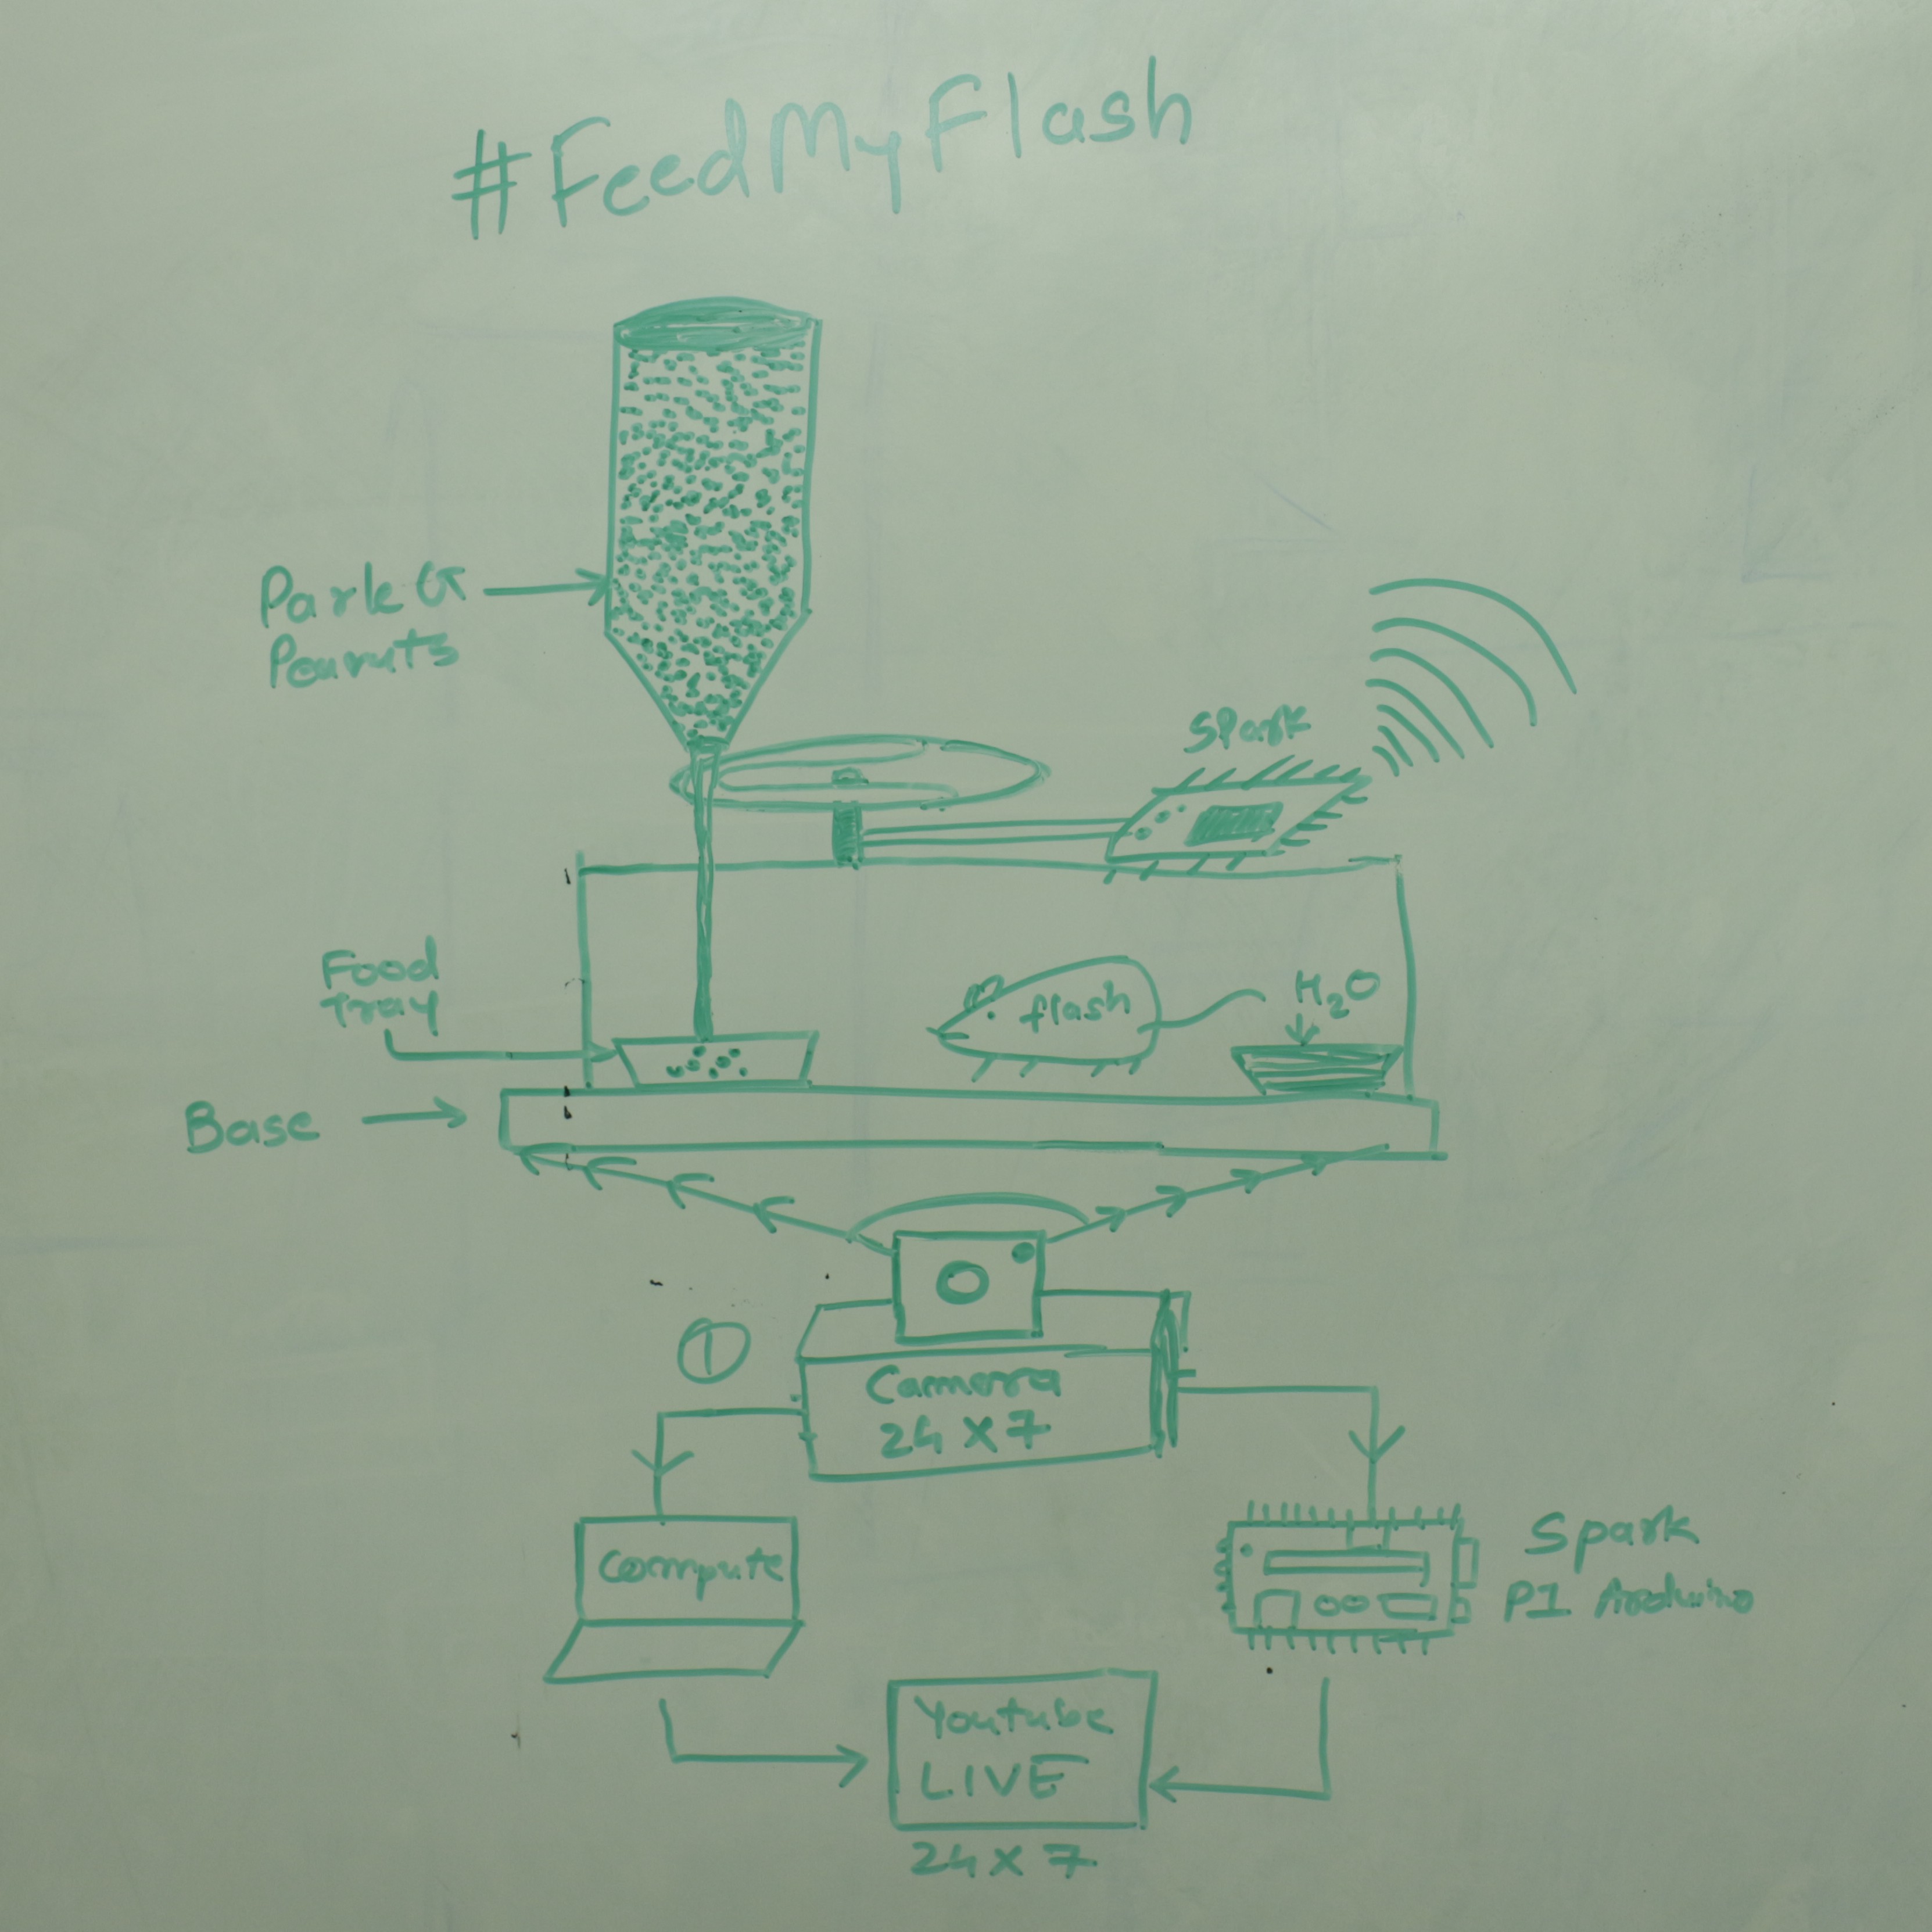 #FeedMyFlash
Park G
Peanuts
Spark
Food
Tray
flash
H₂O
Base
1
Camera
24 x 7
Compute
Spark
PI Arduino
Youtube
LIVE
24 x 7